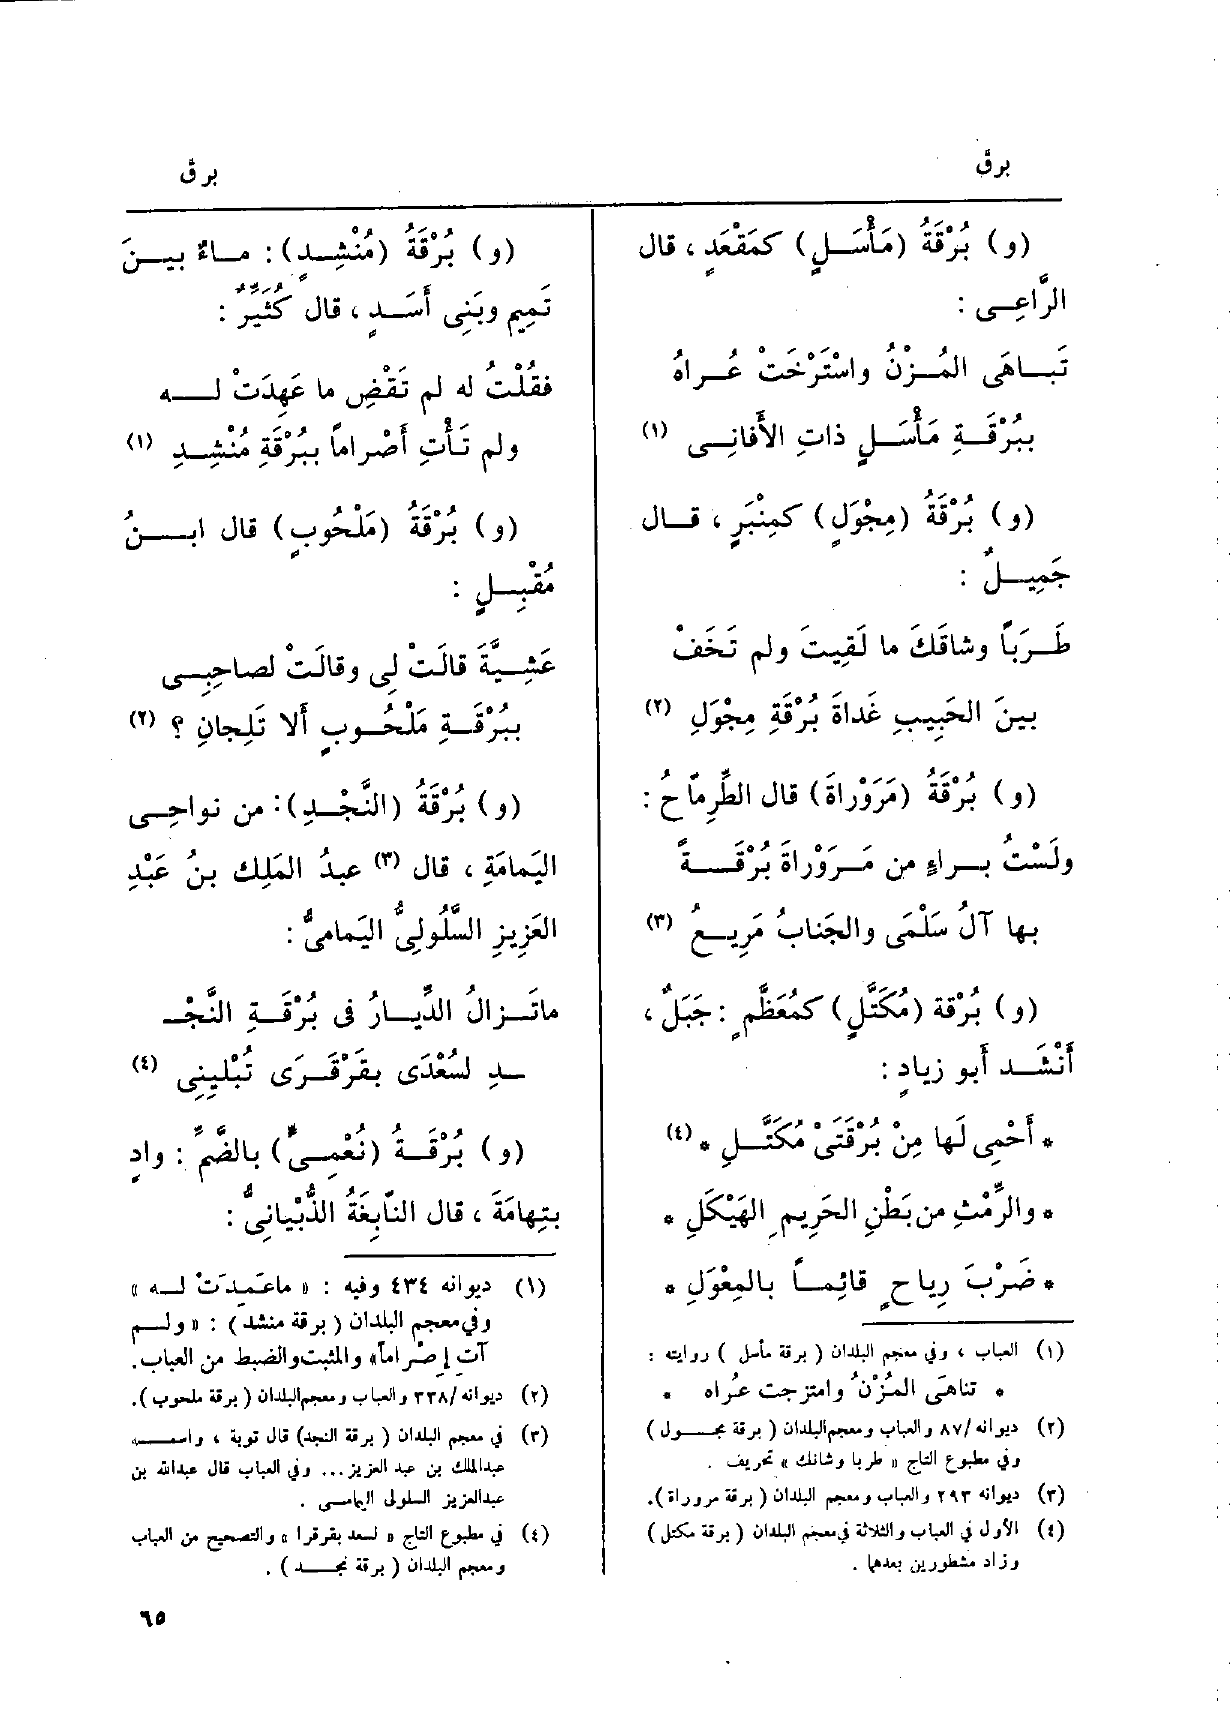 برق
برق
(و) بُرْقَةُ (مَأْسَلٍ) كمَقْعَدٍ ، قال
الرَّاعِى :
تَبَاهَى المُزْنُ واسْتَرْخَتْ عُراهُ
ببُرْقَةِ مَأْسَلٍ ذاتِ الأَفانِى (١)
(و) بُرْقَةُ (مِجْوَلٍ) كمِنْبَرٍ ، قال
جَمِيلٌ :
طَرَباً وشاقَكَ ما لَقِيتَ ولم تَخَفْ
بينَ الحَبِيبِ غَداةَ بُرْقَةِ مِجْوَلِ (٢)
(و) بُرْقَةُ (مَرَوْراةَ) قال الطِّرِمّاحُ :
ولَسْتُ براءٍ من مَرَوْراةَ بُرْقَةً
بها آلُ سَلْمَى والجَنابُ مَرِيعُ (٣)
(و) بُرْقة (مُكَتَّلٍ) كمُعَظَّمٍ : جَبَلٌ ،
أَنْشَد أَبو زيادٍ :
* أَحْمِى لَها مِنْ بُرْقَتَىْ مُكَتَّلِ * (٤)
* والرِّمْثِ من بَطْنِ الحَرِيمِ الهَيْكَلِ *
* ضَرْبَ رِياحٍ قائِماً بالمِعْوَلِ *
(١) العباب ، وفي معجم البلدان ( برقة مأسل ) روايته :
* تناهَى المُزْنُ وامتزجت عُراه *
(٢) ديوانه /٨٧ والعباب ومعجم البلدان ( برقة مجول )
وفي مطبوع التاج « طربا وشانك » تحريف .
(٣) ديوانه ٢٩٣ والعباب ومعجم البلدان ( برقة مروراة ).
(٤) الأول في العباب والثلاثة في معجم البلدان ( برقة مكتل )
وزاد مشطورين بعدها .
(و) بُرْقَةُ (مُنْشِدٍ) : ماءٌ بينَ
تَمِيمٍ وبَنِى أَسَدٍ ، قال كُثَيِّرٌ :
فقُلْتُ له لم تَقْضِ ما عَهِدَتْ له
ولم تَأْتِ أَصْراماً ببُرْقَةِ مُنْشِدِ (١)
(و) بُرْقَةُ (مَلْحُوبٍ) قال ابنُ
مُقْبِلٍ :
عَشِيَّةَ قالَتْ لِى وقالَتْ لصاحِبِى
ببُرْقَةِ مَلْحُوبٍ أَلا تَلِجانِ ؟ (٢)
(و) بُرْقَةُ (النَّجْدِ) : من نواحِى
اليَمامَةِ ، قال (٣) عبدُ المَلِك بنُ عَبْدِ
العَزِيزِ السَّلُولِىُّ اليَمامىُّ :
ماتَزالُ الدِّيارُ فى بُرْقَةِ النَّجْـ
ـدِ لسُعْدَى بقَرْقَرَى تُبْلِينِى (٤)
(و) بُرْقَةُ (نُعْمِىٍّ) بالضَّمِّ : وادٍ
بتِهامَةَ ، قال النّابِغَةُ الذُّبْيانِىُّ :
(١) ديوانه ٤٣٤ وفيه : « ما عَمِدَتْ له »
وفي معجم البلدان ( برقة منشد ) : « ولم
آتِ إصْراماً» والمثبت والضبط من العباب.
(٢) ديوانه /٣٣٨ والعباب ومعجم البلدان ( برقة ملحوب ).
(٣) في معجم البلدان ( برقة النجد) قال توبة ، واسمه
عبدالملك بن عبد العزيز ... وفي العباب قال عبدالله بن
عبدالعزيز السلولى اليمامى .
(٤) في مطبوع التاج « لسعد بقرقرا » والتصحيح من العباب
ومعجم البلدان ( برقة نجد ) .
٦٥